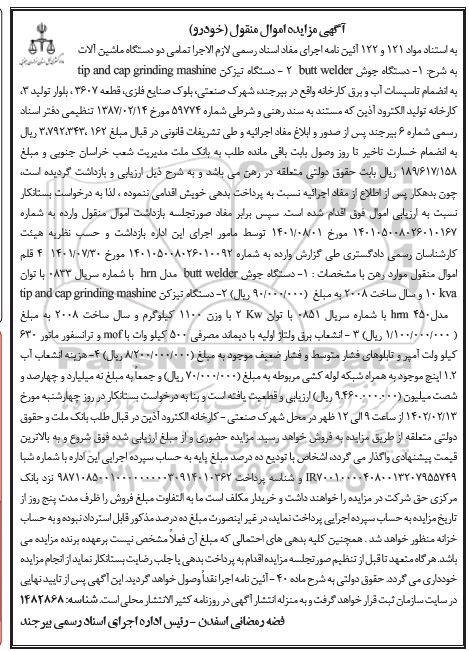 آگهی مزایده اموال منقول (خودرو)
به استناد مواد ۱۲۱ و ۱۲۲ آئین نامه اجرای مفاد اسناد رسمی لازم الاجرا تمامی دو دستگاه ماشین آلات
به شرح: ۱- دستگاه جوش butt welder ۲ - دستگاه تیزکن tip and cap grinding mashine
به انضمام تاسیسات آب و برق کارخانه واقع در بیرجند، شهرک صنعتی، بلوک صنایع فلزی، قطعه ۳۶۰۷ ، بلوار تولید ۳،
کارخانه تولید الکترود آذین که مستند به سند رهنی و شرطی شماره ۵۹۷۷۴ مورخ ۱۳۸۷/۰۲/۱۴ تنظیمی دفتر اسناد
رسمی شماره ۶ بیرجند پس از صدور و ابلاغ مفاد اجرائیه و طی تشریفات قانونی در قبال مبلغ ۳،۷۹۲،۳۴۳،۱۶۲ ریال
به انضمام خسارت تاخیر تا روز وصول بابت باقی مانده طلب به بانک ملت مدیریت شعب خراسان جنوبی و مبلغ
۱۸۹/۶۱۷/۱۵۸ ریال بابت حقوق دولتی متعلقه در رهن می باشد و به شرح ذیل ارزیابی و بازداشت گردیده است،
چون بدهکار پس از اطلاع از مفاد اجرائیه نسبت به پرداخت بدهی خویش اقدامی ننموده ، لذا به درخواست بستانکار
نسبت به ارزیابی اموال فوق اقدام شده است. سپس برابر مفاد صورتجلسه بازداشت اموال منقول وارده به شماره
۱۴۰۱۰۵۰۰۸۰۲۶۰۱۰۱۶۷ مورخ ۱۴۰۱/۰۸/۰۱ توسط مامور اجرای این اداره بازداشت و حسب نظریه هیئت
کارشناسان رسمی دادگستری طی گزارش وارده به شماره ۱۴۰۱۰۵۰۰۸۰۲۶۰۱۰۰۹۲ مورخ ۱۴۰۱/۰۷/۳۰ ۴ قلم
اموال منقول موارد رهن با مشخصات : ۱- دستگاه جوش butt welder مدل hrn با شماره سریال ۰۸۳۳ با توان
10 kva و سال ساخت ۲۰۰۸ به مبلغ (۹۰/۰۰۰/۰۰۰ ریال) ۲-دستگاه تیزکن tip and cap grinding mashine
مدل hrm ۴۵۰ با شماره سریال ۰۸۵۱ با توان ۲ Kw با وزن ۱۱۰۰ کیلوگرم و سال ساخت ۲۰۰۸ به مبلغ
(۱/۱۰۰/۰۰۰/۰۰۰ ریال) ۳ - انشعاب برق ولتاژ اولیه با دیماند مصرفی ۵۰۰ کیلو وات با mof و ترانسفور ماتور ۶۳۰
کیلو ولت آمپر و تابلوهای فشار متوسط و فشار ضعیف موجود به مبلغ (۸/۲۰۰/۰۰۰/۰۰۰ ریال) ۴- هزینه انشعاب آب
۱.۲ اینچ موجود به همراه شبکه لوله کشی مربوطه به مبلغ (۷۰/۰۰۰/۰۰۰ ریال) و جمعا به مبلغ نه میلیارد و چهارصد و
شصت میلیون (۹،۴۶۰،۰۰۰،۰۰۰ ریال) ارزیابی و قطعیت یافته است و بنا به درخواست بستانکار در روز چهارشنبه مورخ
۱۴۰۲/۰۲/۱۳ از ساعت ۹ الی ۱۲ ظهر در محل شهرک صنعتی - کارخانه الکترود آذین در قبال طلب بانک ملت و حقوق
دولتی متعلقه از طریق مزایده به فروش خواهد رسید. مزایده حضوری و از مبلغ ارزیابی شده فوق شروع و به بالاترین
قیمت پیشنهادی واگذار می گردد، اشخاص با تودیع ده درصد مبلغ پایه به حساب سپرده اجرایی این اداره با شماره شبا
و شناسه پرداخت نزد بانک
مرکزی حق شرکت در مزایده را خواهند داشت و خریدار مکلف است ما به التفاوت مبلغ فروش را ظرف مدت پنج روز از
تاریخ مزایده به حساب سپرده اجرایی پرداخت نماید، در غیر اینصورت مبلغ ده درصد مذکور قابل استرداد نبوده و به حساب
خزانه منظور خواهد شد . همچنین کلیه بدهی های احتمالی که مبلغ آن فعلاً مشخص نیست برعهده برنده مزایده می
باشد. هرگاه متعهد تا قبل از تنظیم صورتجلسه مزایده اقدام به پرداخت بدهی یا جلب رضایت بستانکار نماید از انجام مزایده
خودداری می گردد. حقوق دولتی به شرح ماده ۴۰ - آئین نامه اجرا نقداً وصول خواهد گردید. این آگهی پس از تایید نهایی
در سایت سازمان ثبت قرار خواهد گرفت و به منزله انتشار آگهی در روزنامه کثیر الانتشار محلی است. شناسه: ۱۴۸۲۸۶۸
فضه رمضانی اسفدن - رئیس اداره اجرای اسناد رسمی بیرجند